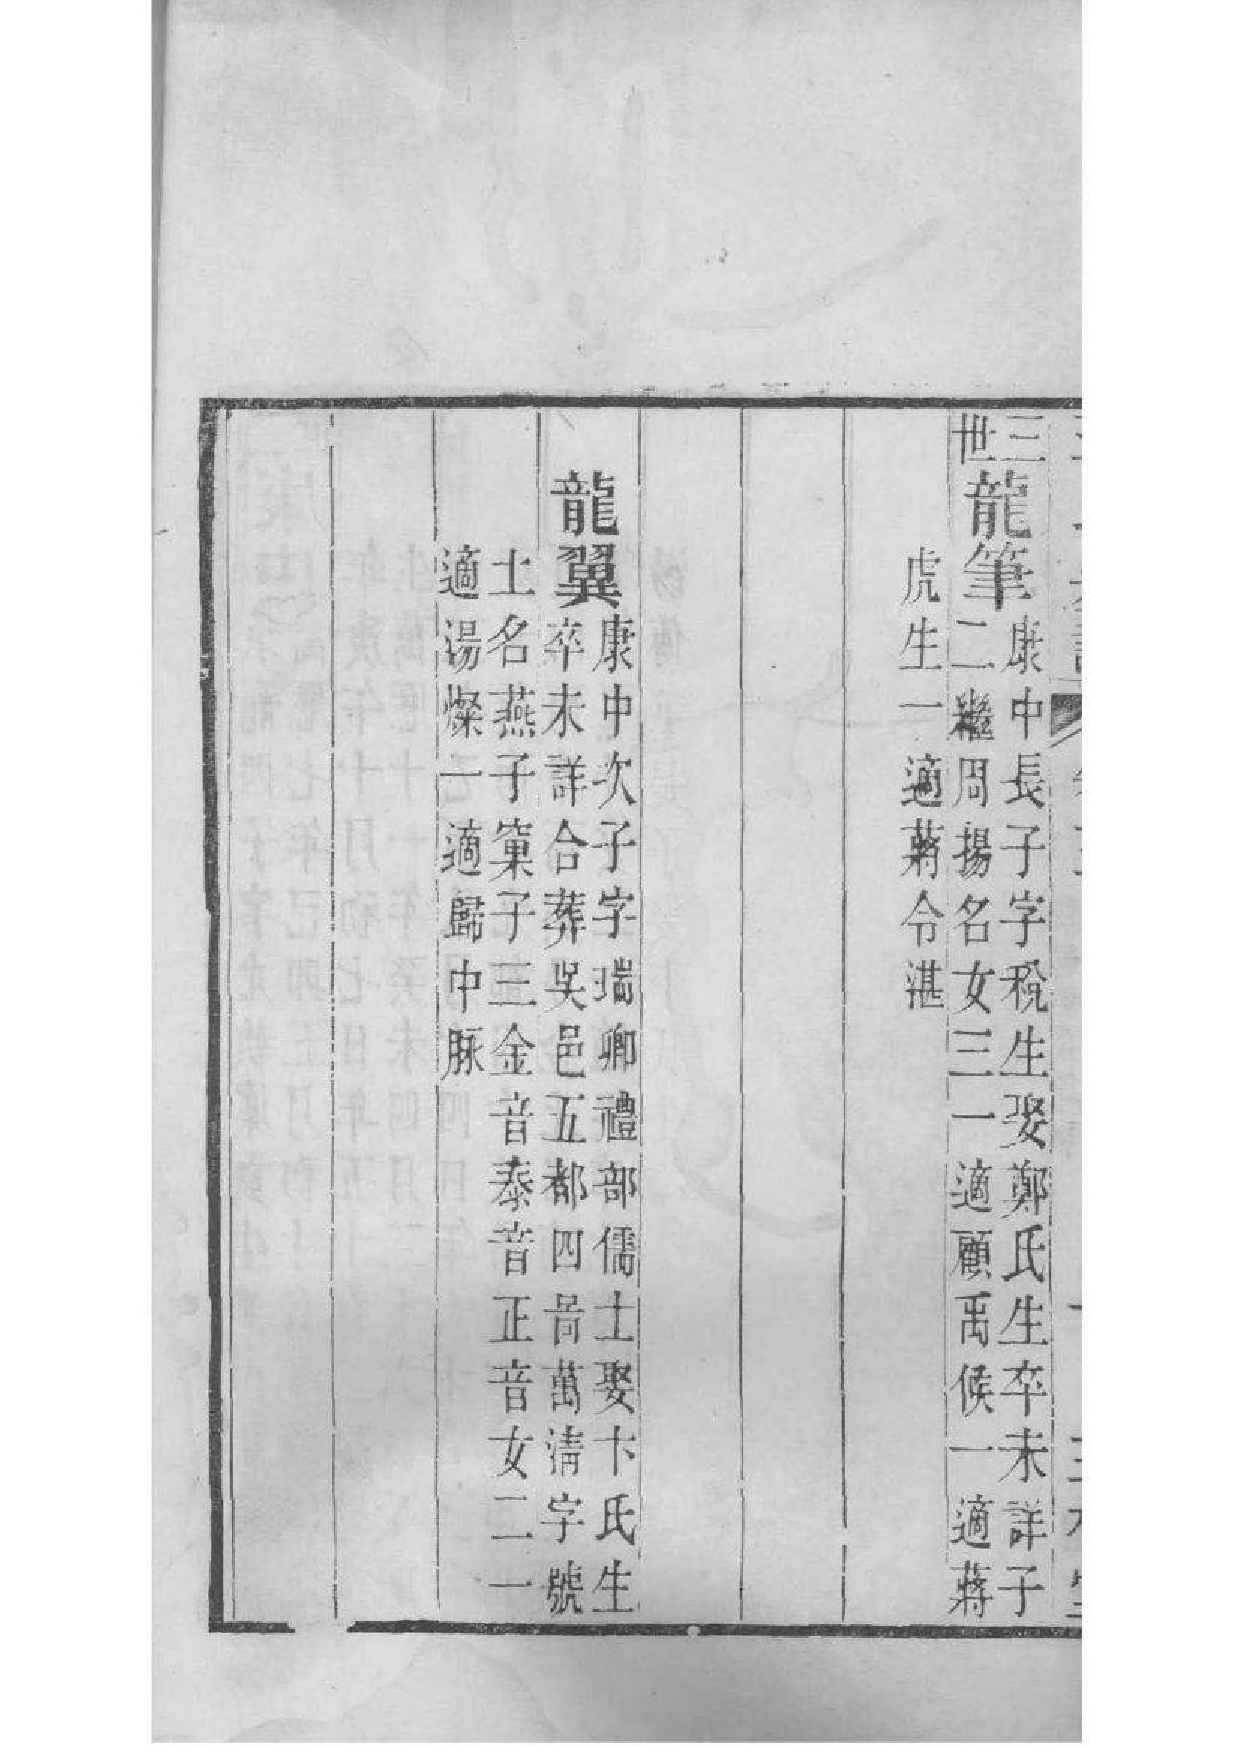 三世
龍筆
康中長子字稅生娶鄭氏生卒未詳子
二繼周揚名女三一適顧禹候一適蔣
虎生一適蔣令湛
龍翼
康中次子字瑞卿禮部儒士娶卞氏生
卒未詳合葬吳邑五都四啚萬淸字號
土名燕子窠子三金音泰音正音女二一
適湯燦一適歸中脉